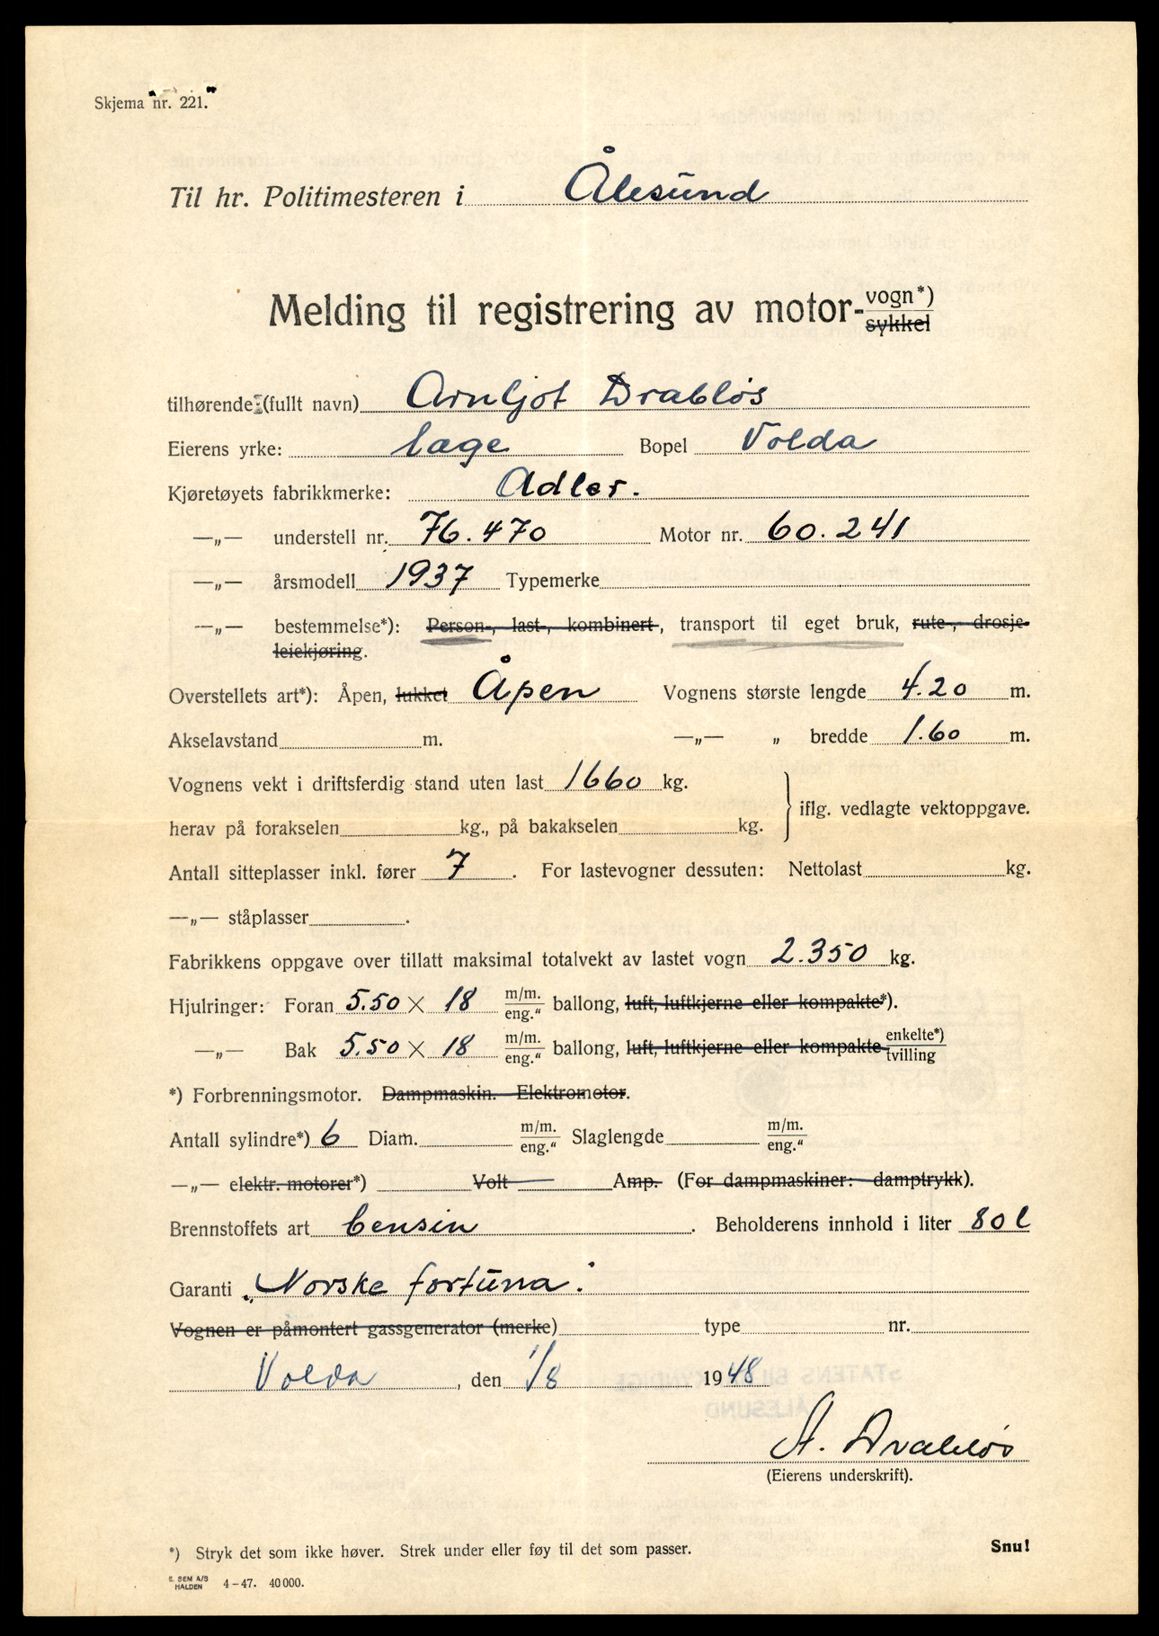 Skjema nr. 221.
Til hr. Politimesteren i Ålesund
Melding til registrering av motor-vogn*)
sykkel
tilhørende: (fullt navn) Arnljot Drabløs
Eierens yrke: læge Bopel Volda
Kjøretøyets fabrikkmerke: Adler.
—„— understell nr. 76.470 Motor nr. 60.241
—„— årsmodell 1937 Typemerke
—„— bestemmelse*): Person-, last-, kombinert, transport til eget bruk, rute-, drosje-
leiekjøring.
Overstellets art*): Åpen, lukket Åpen Vognens største lengde 4.20 m.
Akselavstand m. —„— „ bredde 1.60 m.
Vognens vekt i driftsferdig stand uten last 1660 kg.
iflg. vedlagte vektoppgave.
herav på forakselen kg., på bakakselen kg.
Antall sitteplasser inkl. fører 7. For lastevogner dessuten: Nettolast kg.
—„— ståplasser .
Fabrikkens oppgave over tillatt maksimal totalvekt av lastet vogn 2.350 kg.
Hjulringer: Foran 5.50 × 18 m/m. eng." ballong, luft, luftkjerne eller kompakte*).
—„— Bak 5.50 × 18 m/m. eng." ballong, luft, luftkjerne eller kompakte- enkelte*) tvilling
*) Forbrenningsmotor. Dampmaskin. Elektromotor.
Antall sylindre*) 6 Diam. m/m. eng." Slaglengde m/m. eng."
—„— elektr. motorer*) Volt Amp. (For dampmaskiner: damptrykk).
Brennstoffets art bensin . Beholderens innhold i liter 80 l
Garanti „Norske fortuna."
Vognen er påmontert gassgenerator (merke) type nr.
Volda, den 1/8 1948
A. Drabløs
(Eierens underskrift).
*) Stryk det som ikke høver. Strek under eller føy til det som passer.
Snu!
E. SEM A/S
HALDEN 4-47. 40000.